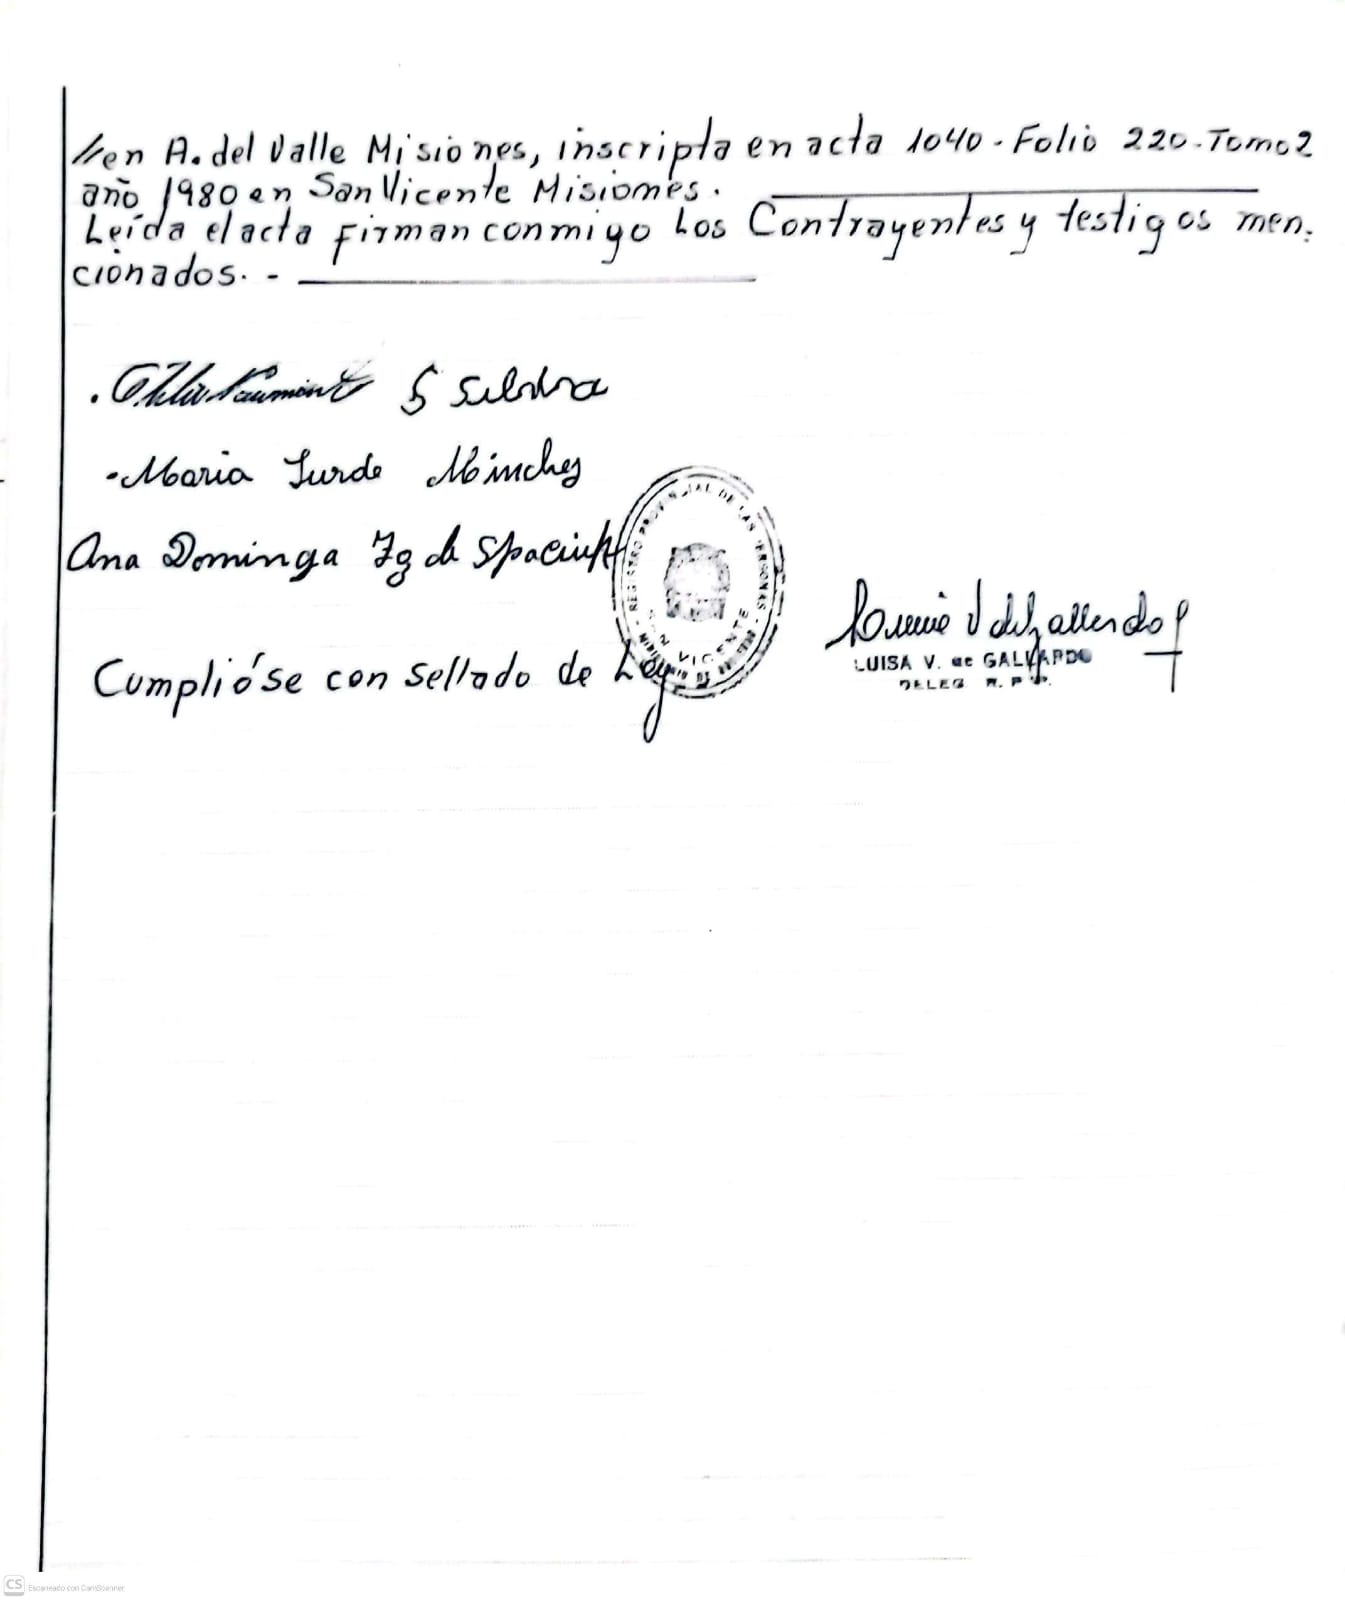 //en A. del Valle Misiones, inscripta en acta 1040. Folio 220. Tomo 2
año 1980 en San Vicente Misiones.
Leída el acta firman conmigo Los Contrayentes y testigos men.
cionados. -
S Silva
- Maria Lurde
Ana Dominga de
REGISTRO PROVINCIAL DE LAS PERSONAS
SAN VICENTE
LUISA V. de GALLARDO
DELEG. R. P. P.
Cumplióse con sellado de Ley
CS Escaneado con CamScanner